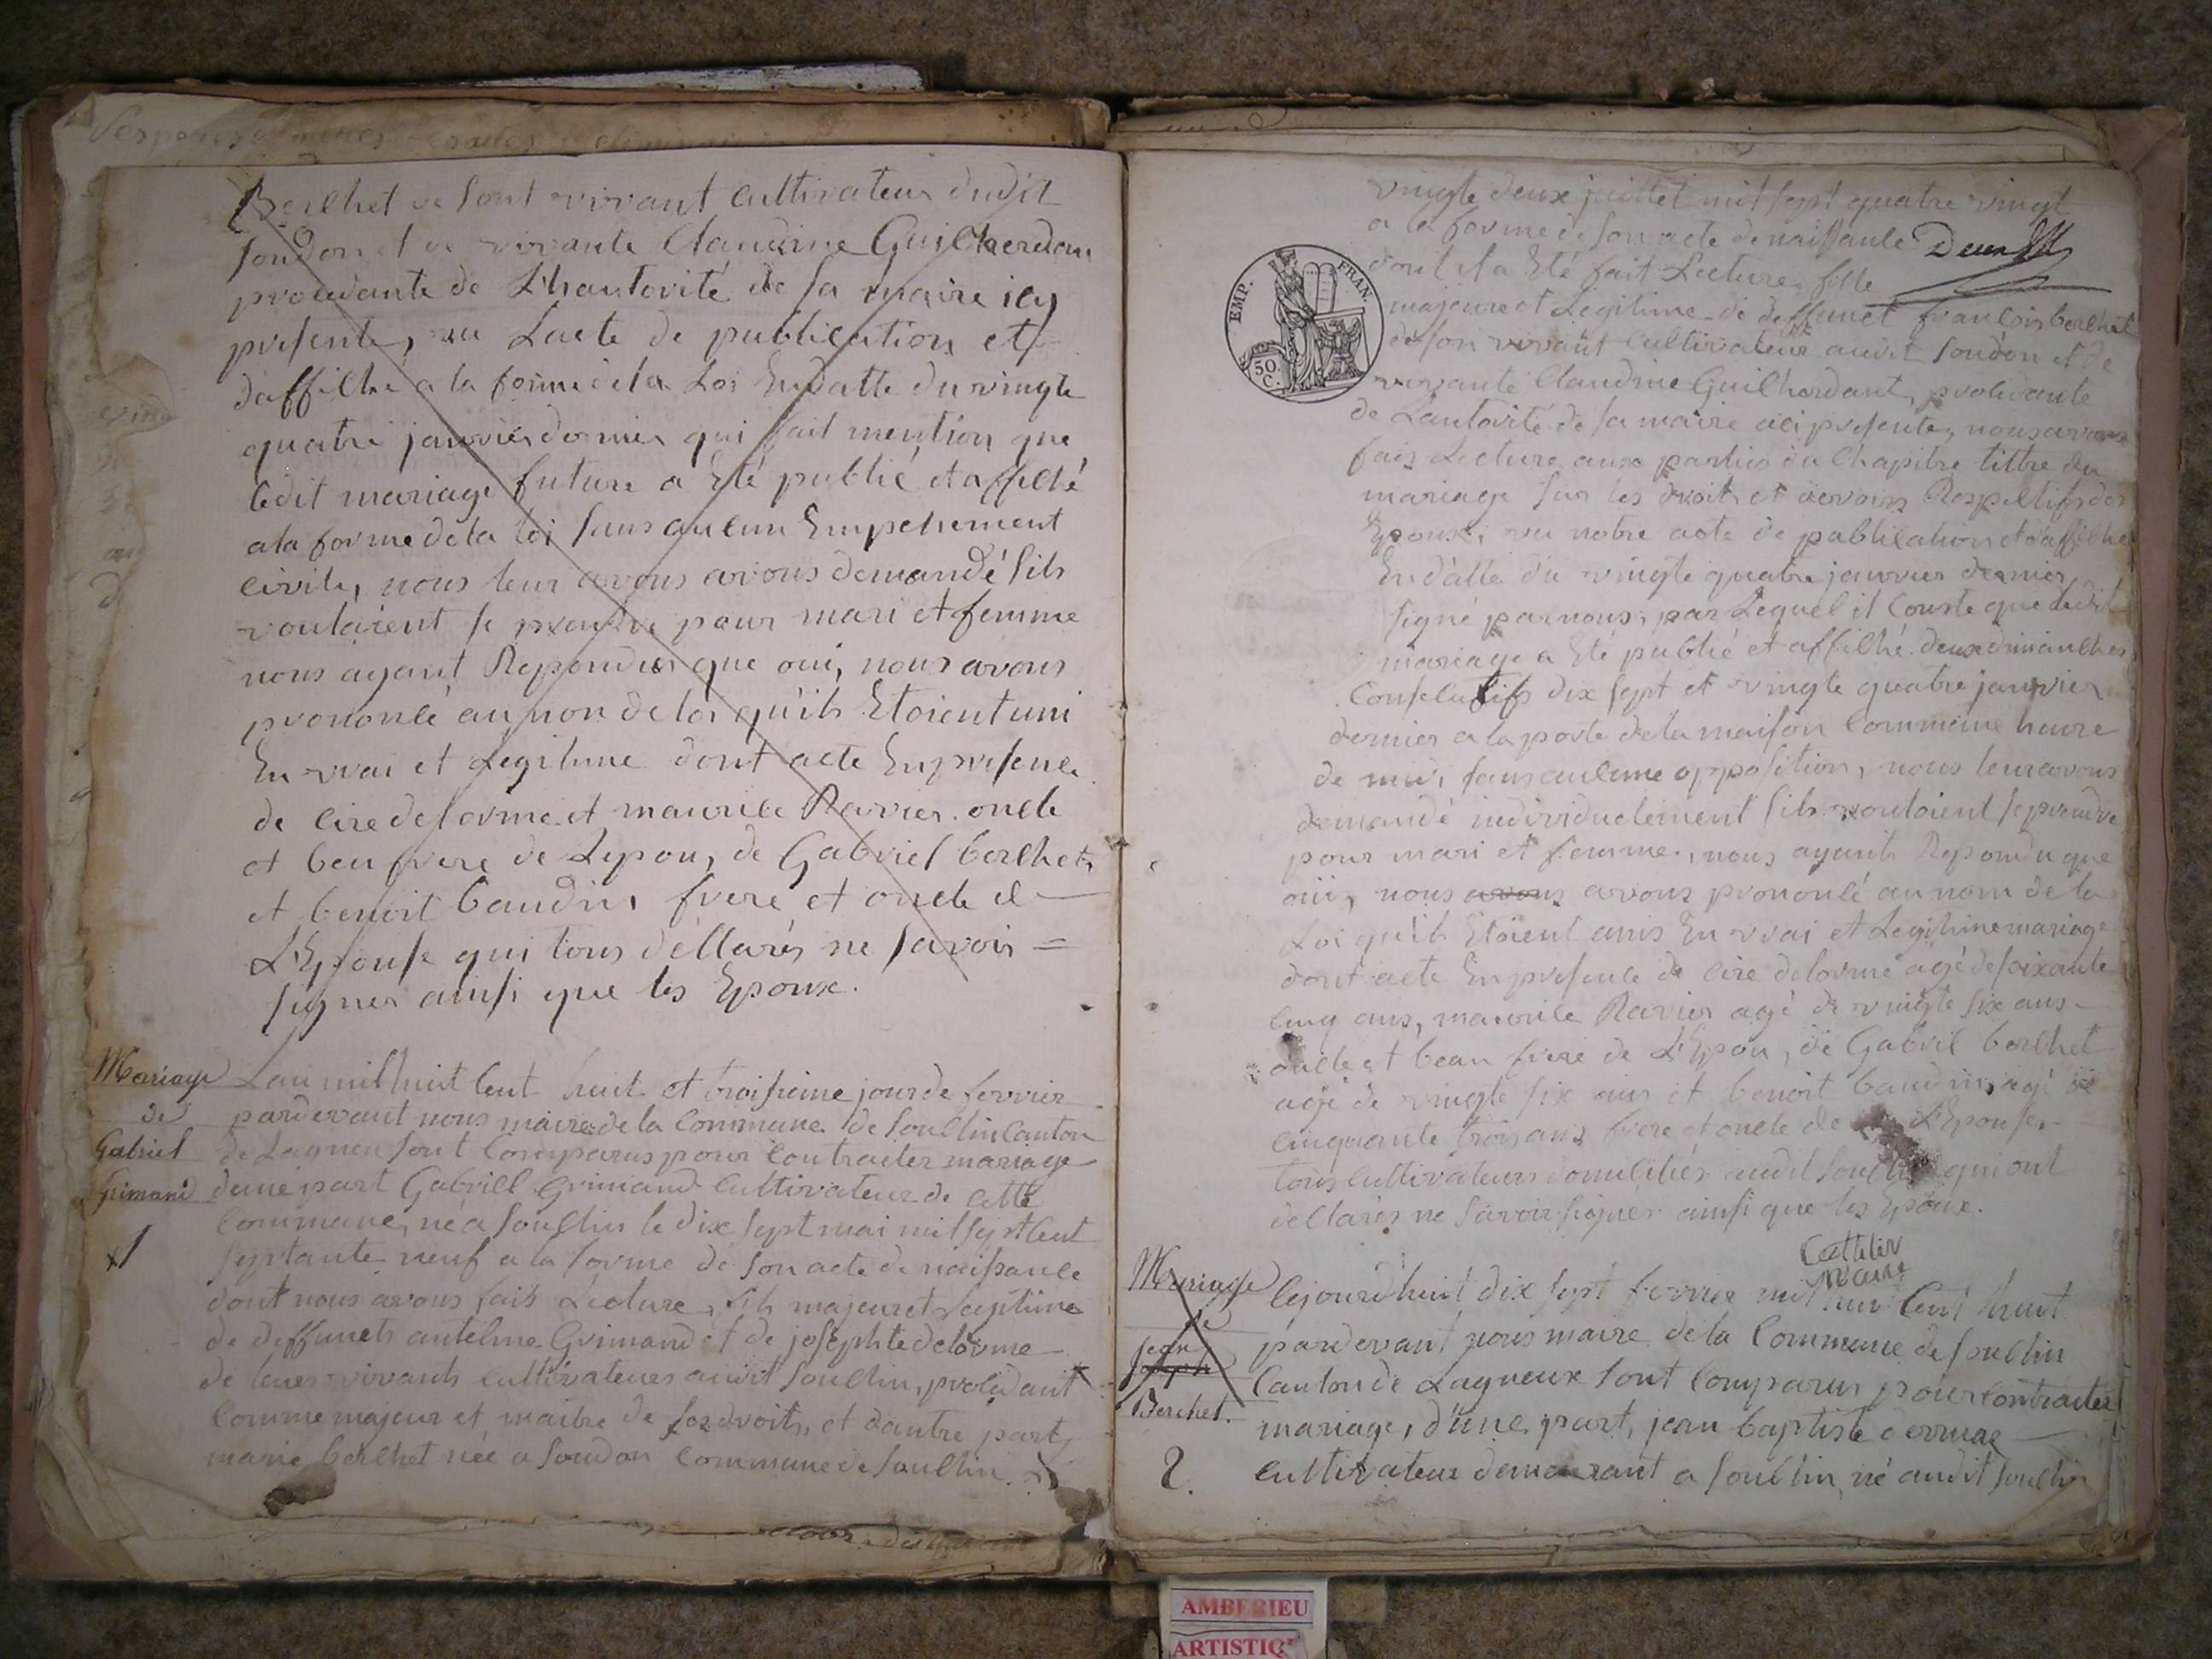 Berlhet de sont vivant Cultivateur dudit
soudon et de vivante Claudine Guilherdan
procédante de L'hautorité de sa maire icy
presente, vu Lacte de publication et
daffilhe a la forme de la Loi En datte du vingte
quatre janvier dernier qui fait mention que
ledit mariage future a Eté publié et affilhé
a la forme de la loi sans aulun Empechement
civile, nous leur avons avons demandé sils
voulaient se prendre pour mari et femme
nous ayant Repondus que oui, nous avons
prononlé au non de loi qu'ils Etoient uni
En vrai et Legitime dont acte En presenle
de cire delorme et maurile Ravier onlle
et beu frere de Lepou, de Gabriel berlhet
et benoit baudin frere et onlle de
L'Epouse qui tous déllarés ne savoir =
signer ainsi que les Epoux.
Mariage
de
Gabriel
Grimand
1
Lan mil huit Cent huit et troisieme jour de fevrier
pardevant nous maire de la Commune de soullin Canton
de Lagneu sont Comparus pour Contracter mariage
dune part Gabriel Grimand Cultivateur de cette
Commune, né a soullin le dix sept mai mil sept Cent
septante neuf a la forme de son acte de naissanle
dont nous avons fais Lecture, fils majeur et Legitime
de deffunets antelme Grimand et de josephte delorme
de leurs vivants Cultivateurs audit soullin, prolédant
Comme majeur et maitre de ses droits, et dautre part
marie berlhet née a soudon Commune de soullin
vingte deux juillet mil sept quatre vingt
a la forme de son acte de naissanle
dont il a Eté fait Lecture, fille
majeure et Legitime de deffunct franlois berlhet
de son vivant Cultivateur audit soudon et de
vivante Claudine Guilhardant, prolédante
de Lautorité de sa maire ici presente, nous avons
fais Lecture aux parties du Chapitre tittre du
mariage sur les droits et devoirs Respeltifs des
Epoux, vu notre acte de publication et daffilhe
En datte du vingte quatre janvier dernier
signé par nous, par Lequel il Conste que ledit
mariage a Eté publié et affilhé deux dimanlhes
Conselutifs dix sept et vingte quatre janvier
dernier a la porte de la maison Commune heure
de midi sans aulune opposition, nous leur avons
demandé individuelement sils vouloient se prendre
pour mari et femme, nous ayant Repondu que
oui, nous avons avons prononlé au nom de la
Loi qu'ils Etoient unis En vrai et Legitime mariage
dont acte En presenle de cire delorme agé de soixante
cinq ans, maurile Ravier agé de vingte six ans
onlle et beau frere de L'Epou, de Gabriel berlhet
agé de vingte six ans et benoit baudin, agé de
cinquante trois ans frere et onlle de L'Epouse
tous Cultivateurs domililiés audit soullin qui ont
dellarés ne savoir signer ainsi que les Epoux.
Mariage
de
jean
Berchet.
2.
Cejourd'huit dix sept fevrier mil huit Cent huit
pardevant nous maire de la Commune de soullin
Canton de Lagneux sont Comparus pour Contracter
mariage, d'une part, jean baptiste
Cultivateur demeurant a soullin, né audit soullin
EMP. FRAN.
50.
C.
AMBERIEU